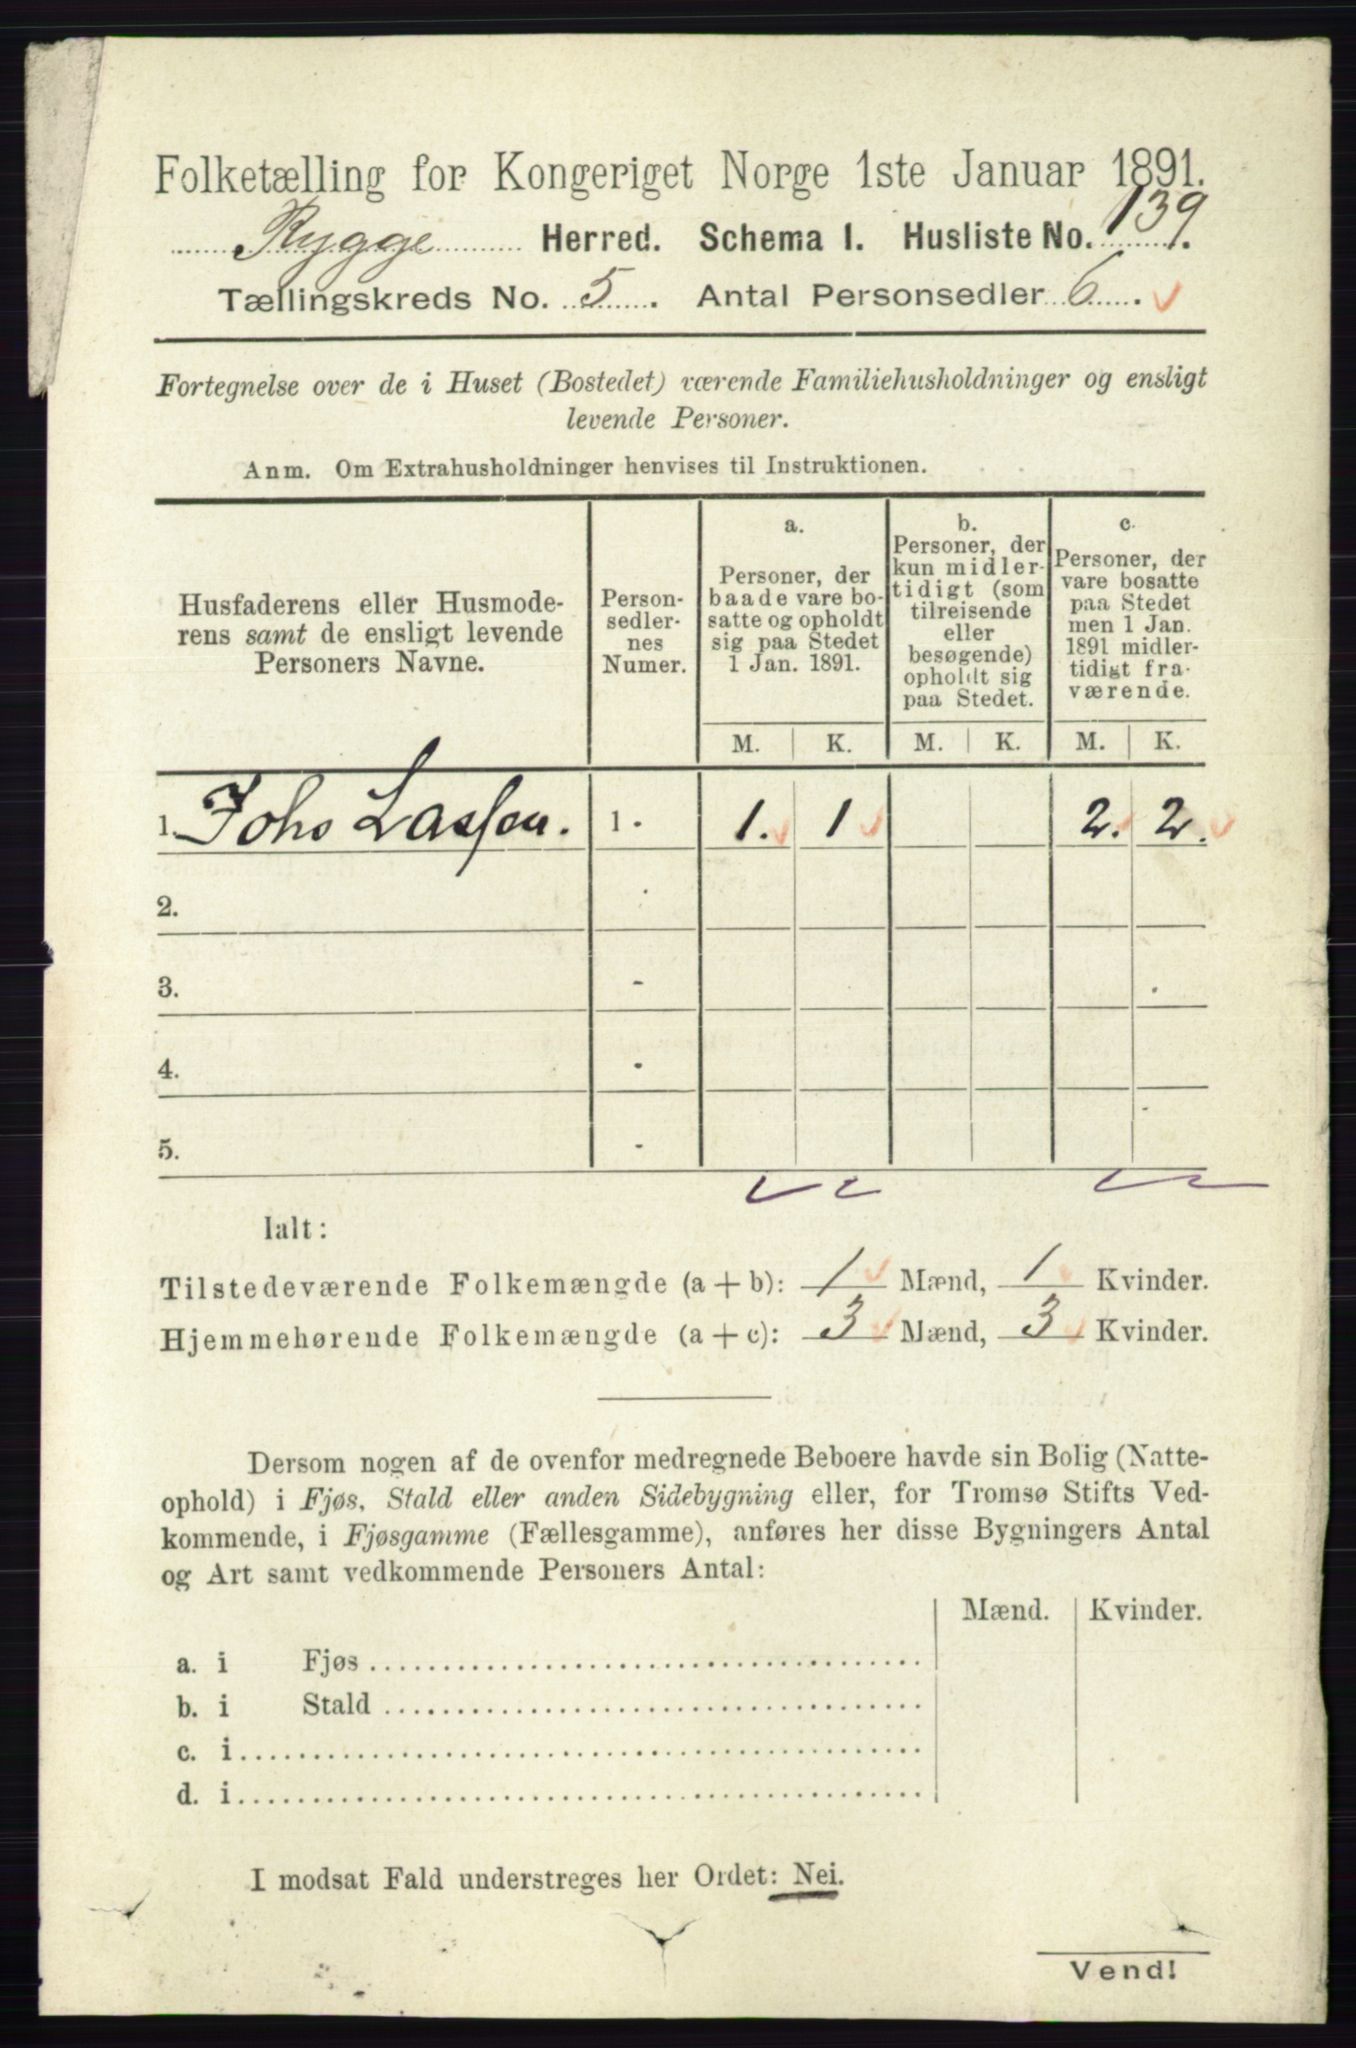 Folketælling for Kongeriget Norge 1ste Januar 1891.
Rygge Herred. Schema I. Husliste No. 139.
Tællingskreds No. 5. Antal Personsedler 6.
Fortegnelse over de i Huset (Bostedet) værende Familiehusholdninger og ensligt
levende Personer.
Anm. Om Extrahusholdninger henvises til Instruktionen.
Husfaderens eller Husmode-
rens samt de ensligt levende
Personers Navne.
Person-
sedler-
nes
Numer.
a.
Personer, der
baade vare bo-
satte og opholdt
sig paa Stedet
1 Jan. 1891.
b.
Personer, der
kun midler-
tidigt (som
tilreisende
eller
besøgende)
opholdt sig
paa Stedet.
c.
Personer, der
vare bosatte
paa Stedet
men 1 Jan.
1891 midler-
tidigt fra-
værende.
M. K. M. K. M. K.
1. Johs Lassen. 1. 1. 1 2. 2.
2.
3. -
4. -
5. -
Ialt:
Tilstedeværende Folkemængde (a + b): 1 Mænd, 1 Kvinder.
Hjemmehørende Folkemængde (a + c): 3 Mænd, 3 Kvinder.
Dersom nogen af de ovenfor medregnede Beboere havde sin Bolig (Natte-
ophold) i Fjøs, Stald eller anden Sidebygning eller, for Tromsø Stifts Ved-
kommende, i Fjøsgamme (Fællesgamme), anføres her disse Bygningers Antal
og Art samt vedkommende Personers Antal:
Mænd. Kvinder.
a. i Fjøs
b. i Stald
c. i
d. i
I modsat Fald understreges her Ordet: Nei.
Vend!